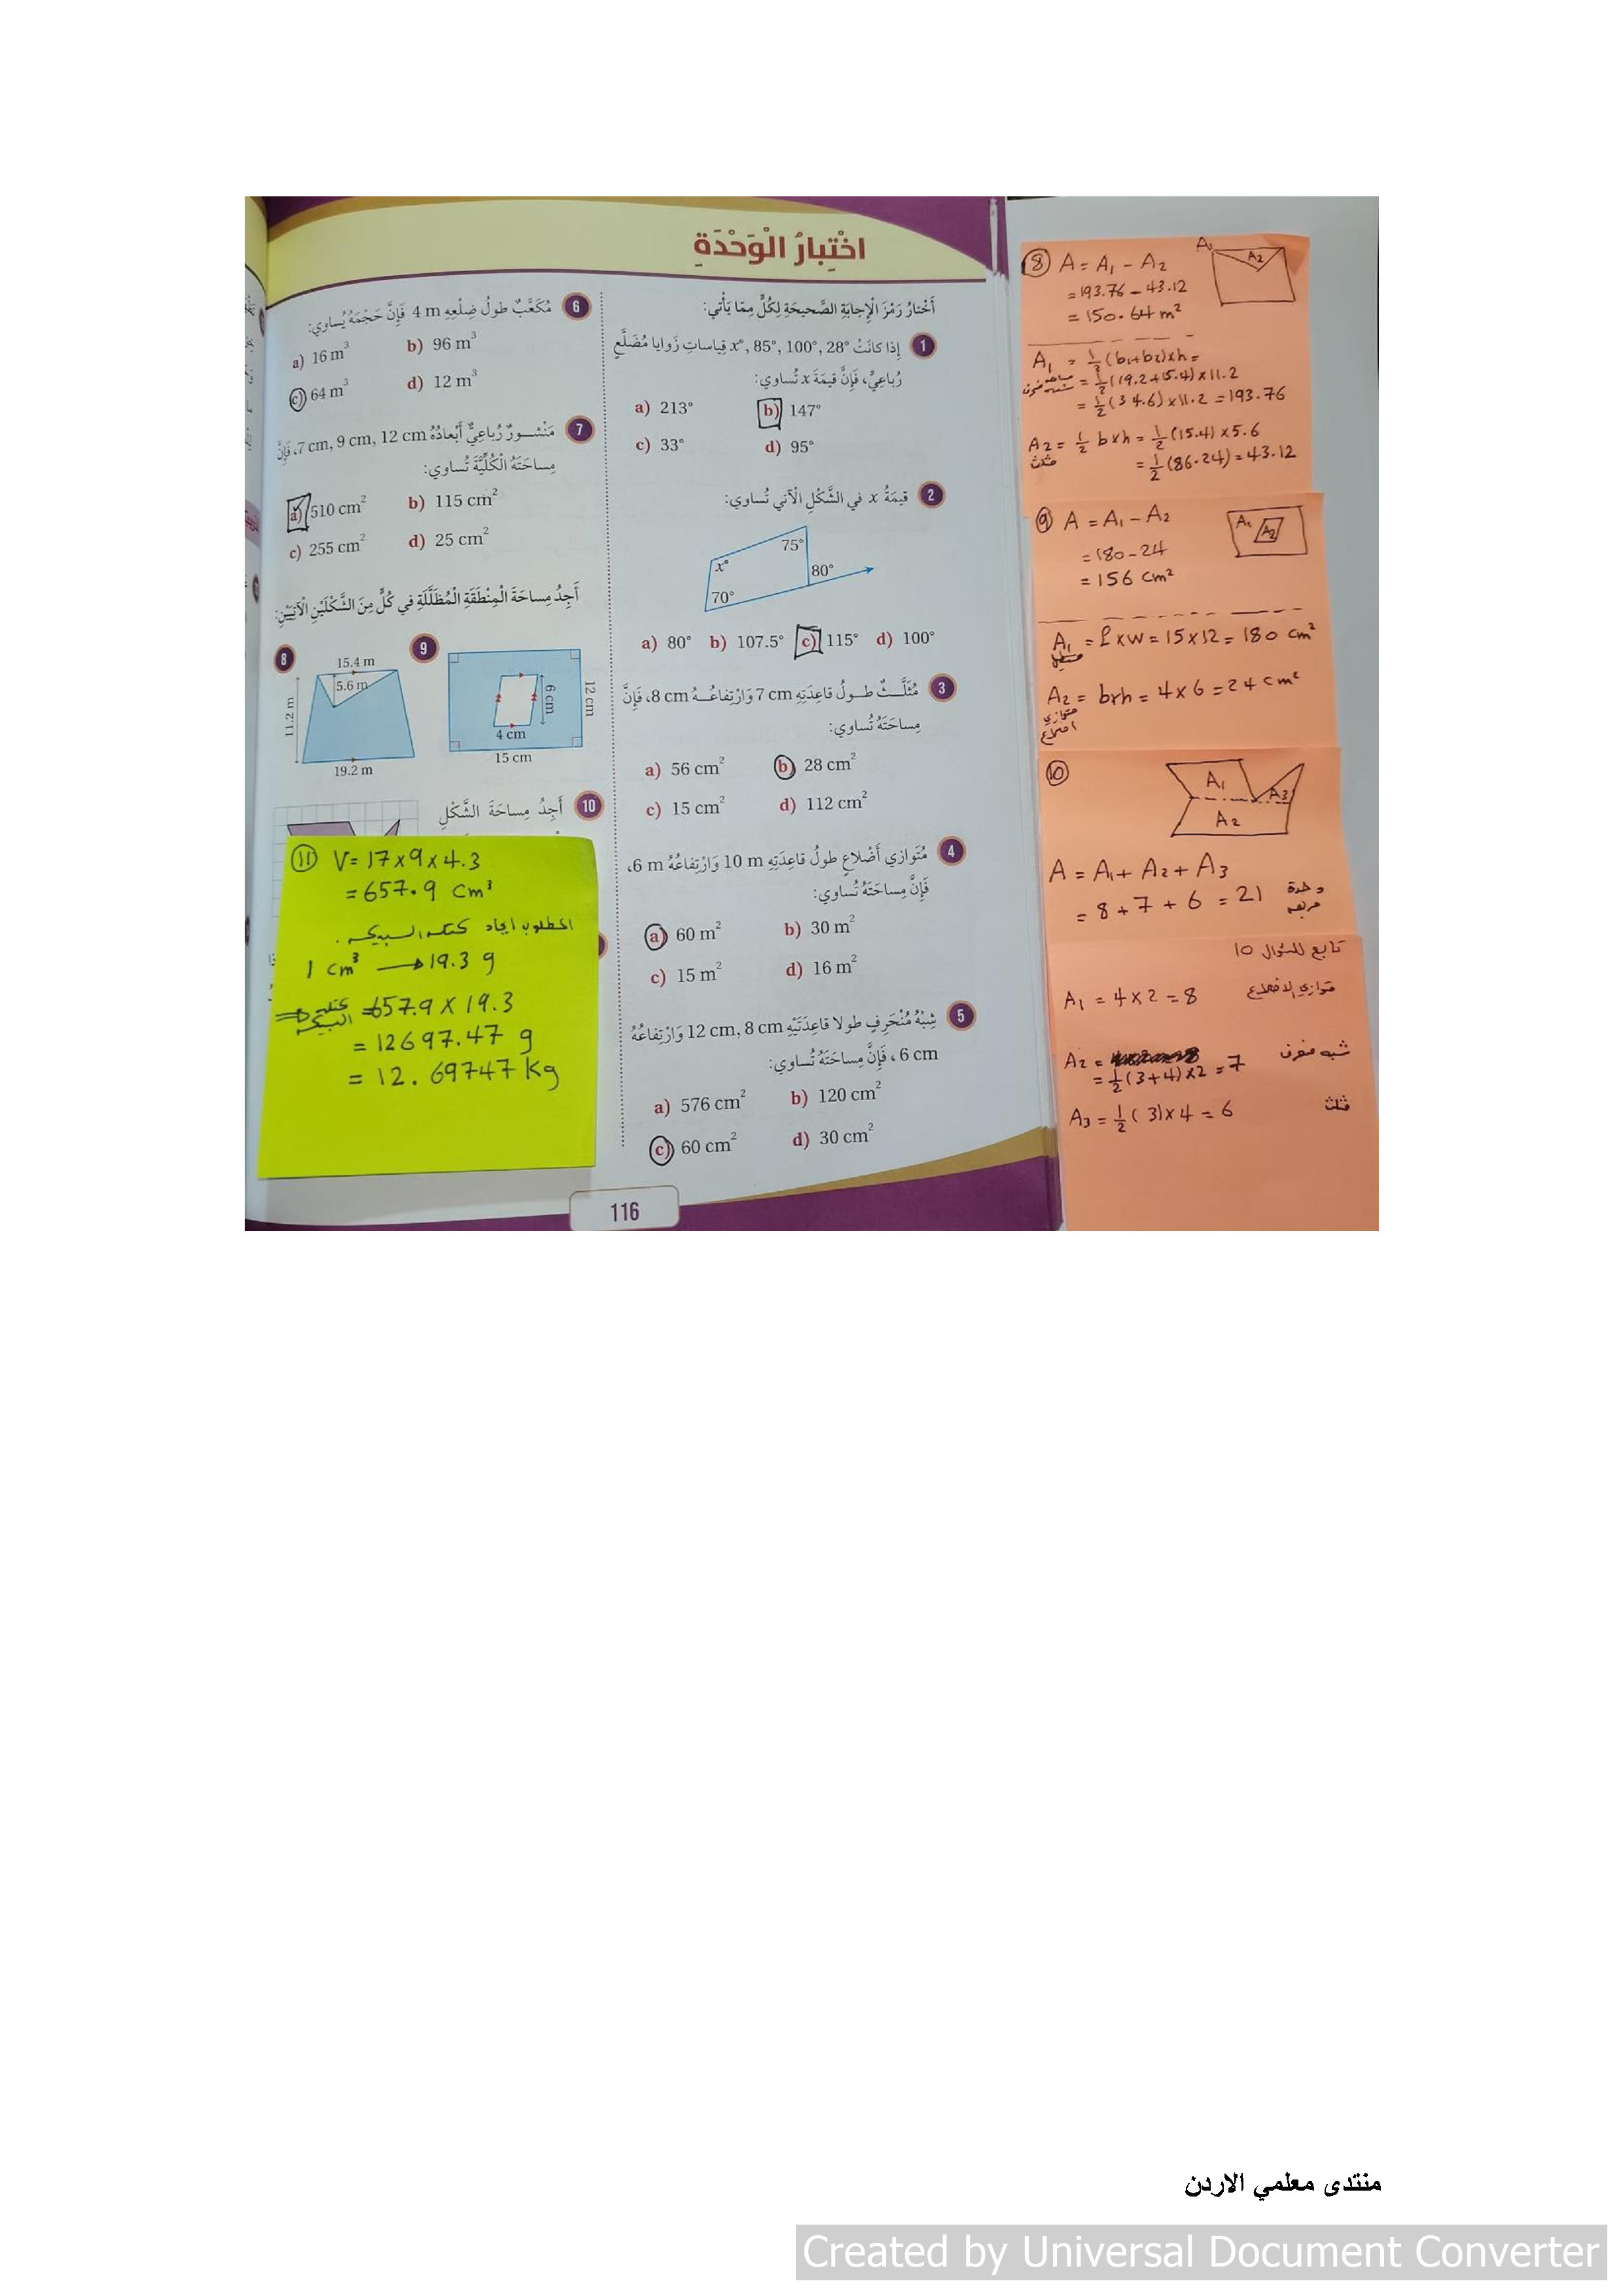 اخْتِبارُ الْوَحْدَةِ
أَخْتارُ رَمْزَ الْإِجابَةِ الصَّحيحَةِ لِكُلٍّ مِمّا يَأْتي:
1 إِذا كانَتْ x°, 85°, 100°, 28° قِياساتِ زَوايا مُضَلَّعٍ
رُباعِيٍّ، فَإِنَّ قيمَةَ x تُساوي:
a) 213° b) 147°
c) 33° d) 95°
2 قيمَةُ x في الشَّكْلِ الْآتي تُساوي:
75°
x°
80°
70°
a) 80° b) 107.5° c) 115° d) 100°
3 مُثَلَّثٌ طولُ قاعِدَتِهِ 7 cm وَارْتِفاعُهُ 8 cm، فَإِنَّ
مِساحَتَهُ تُساوي:
a) 56 cm² b) 28 cm²
c) 15 cm² d) 112 cm²
4 مُتَوازي أَضْلاعٍ طولُ قاعِدَتِهِ 10 m وَارْتِفاعُهُ 6 m،
فَإِنَّ مِساحَتَهُ تُساوي:
a) 60 m² b) 30 m²
c) 15 m² d) 16 m²
5 شِبْهُ مُنْحَرِفٍ طولا قاعِدَتَيْهِ 12 cm, 8 cm وَارْتِفاعُهُ
6 cm، فَإِنَّ مِساحَتَهُ تُساوي:
a) 576 cm² b) 120 cm²
c) 60 cm² d) 30 cm²
6 مُكَعَّبٌ طولُ ضِلْعِهِ 4 m فَإِنَّ حَجْمَهُ يُساوي:
a) 16 m³ b) 96 m³
c) 64 m³ d) 12 m³
7 مَنْشورٌ رُباعِيٌّ أَبْعادُهُ 7 cm, 9 cm, 12 cm، فَإِنَّ
مِساحَتَهُ الْكُلِّيَّةَ تُساوي:
a) 510 cm² b) 115 cm²
c) 255 cm² d) 25 cm²
أَجِدُ مِساحَةَ الْمِنْطَقَةِ الْمُظَلَّلَةِ في كُلٍّ مِنَ الشَّكْلَيْنِ الْآتِيَيْنِ:
8
15.4 m
5.6 m
11.2 m
19.2 m
9
6 cm
12 cm
4 cm
15 cm
10 أَجِدُ مِساحَةَ الشَّكْلِ
11 V = 17 x 9 x 4.3
= 657.9 cm³
المطلوب ايجاد كتلة السبيكة.
1 cm³ → 19.3 g
⇒ كتلة السبيكة = 657.9 X 19.3
= 12697.47 g
= 12.69747 Kg
116
8 A = A₁ - A₂
= 193.76 - 43.12
= 150.64 m²
A₁
A₂
A₁ = ½ (b₁+b₂)xh =
مساحة شبه منحرف = ½ (19.2+15.4) x 11.2
= ½ (34.6) x 11.2 = 193.76
A₂ = ½ b x h = ½ (15.4) x 5.6
مثلث = ½ (86.24) = 43.12
9 A = A₁ - A₂
= 180 - 24
= 156 cm²
A₁
A₂
A₁ = L x W = 15 x 12 = 180 cm²
مستطيل
A₂ = b x h = 4 x 6 = 24 cm²
متوازي
اضلاع
10
A₁
A₃
A₂
A = A₁ + A₂ + A₃
= 8 + 7 + 6 = 21 وحدة مربعه
تابع للسؤال 10
A₁ = 4 x 2 = 8 متوازي الاضلاع
A₂ = شبه منحرف
= ½ (3+4) x 2 = 7
A₃ = ½ (3) x 4 = 6 مثلث
منتدى معلمي الاردن
Created by Universal Document Converter